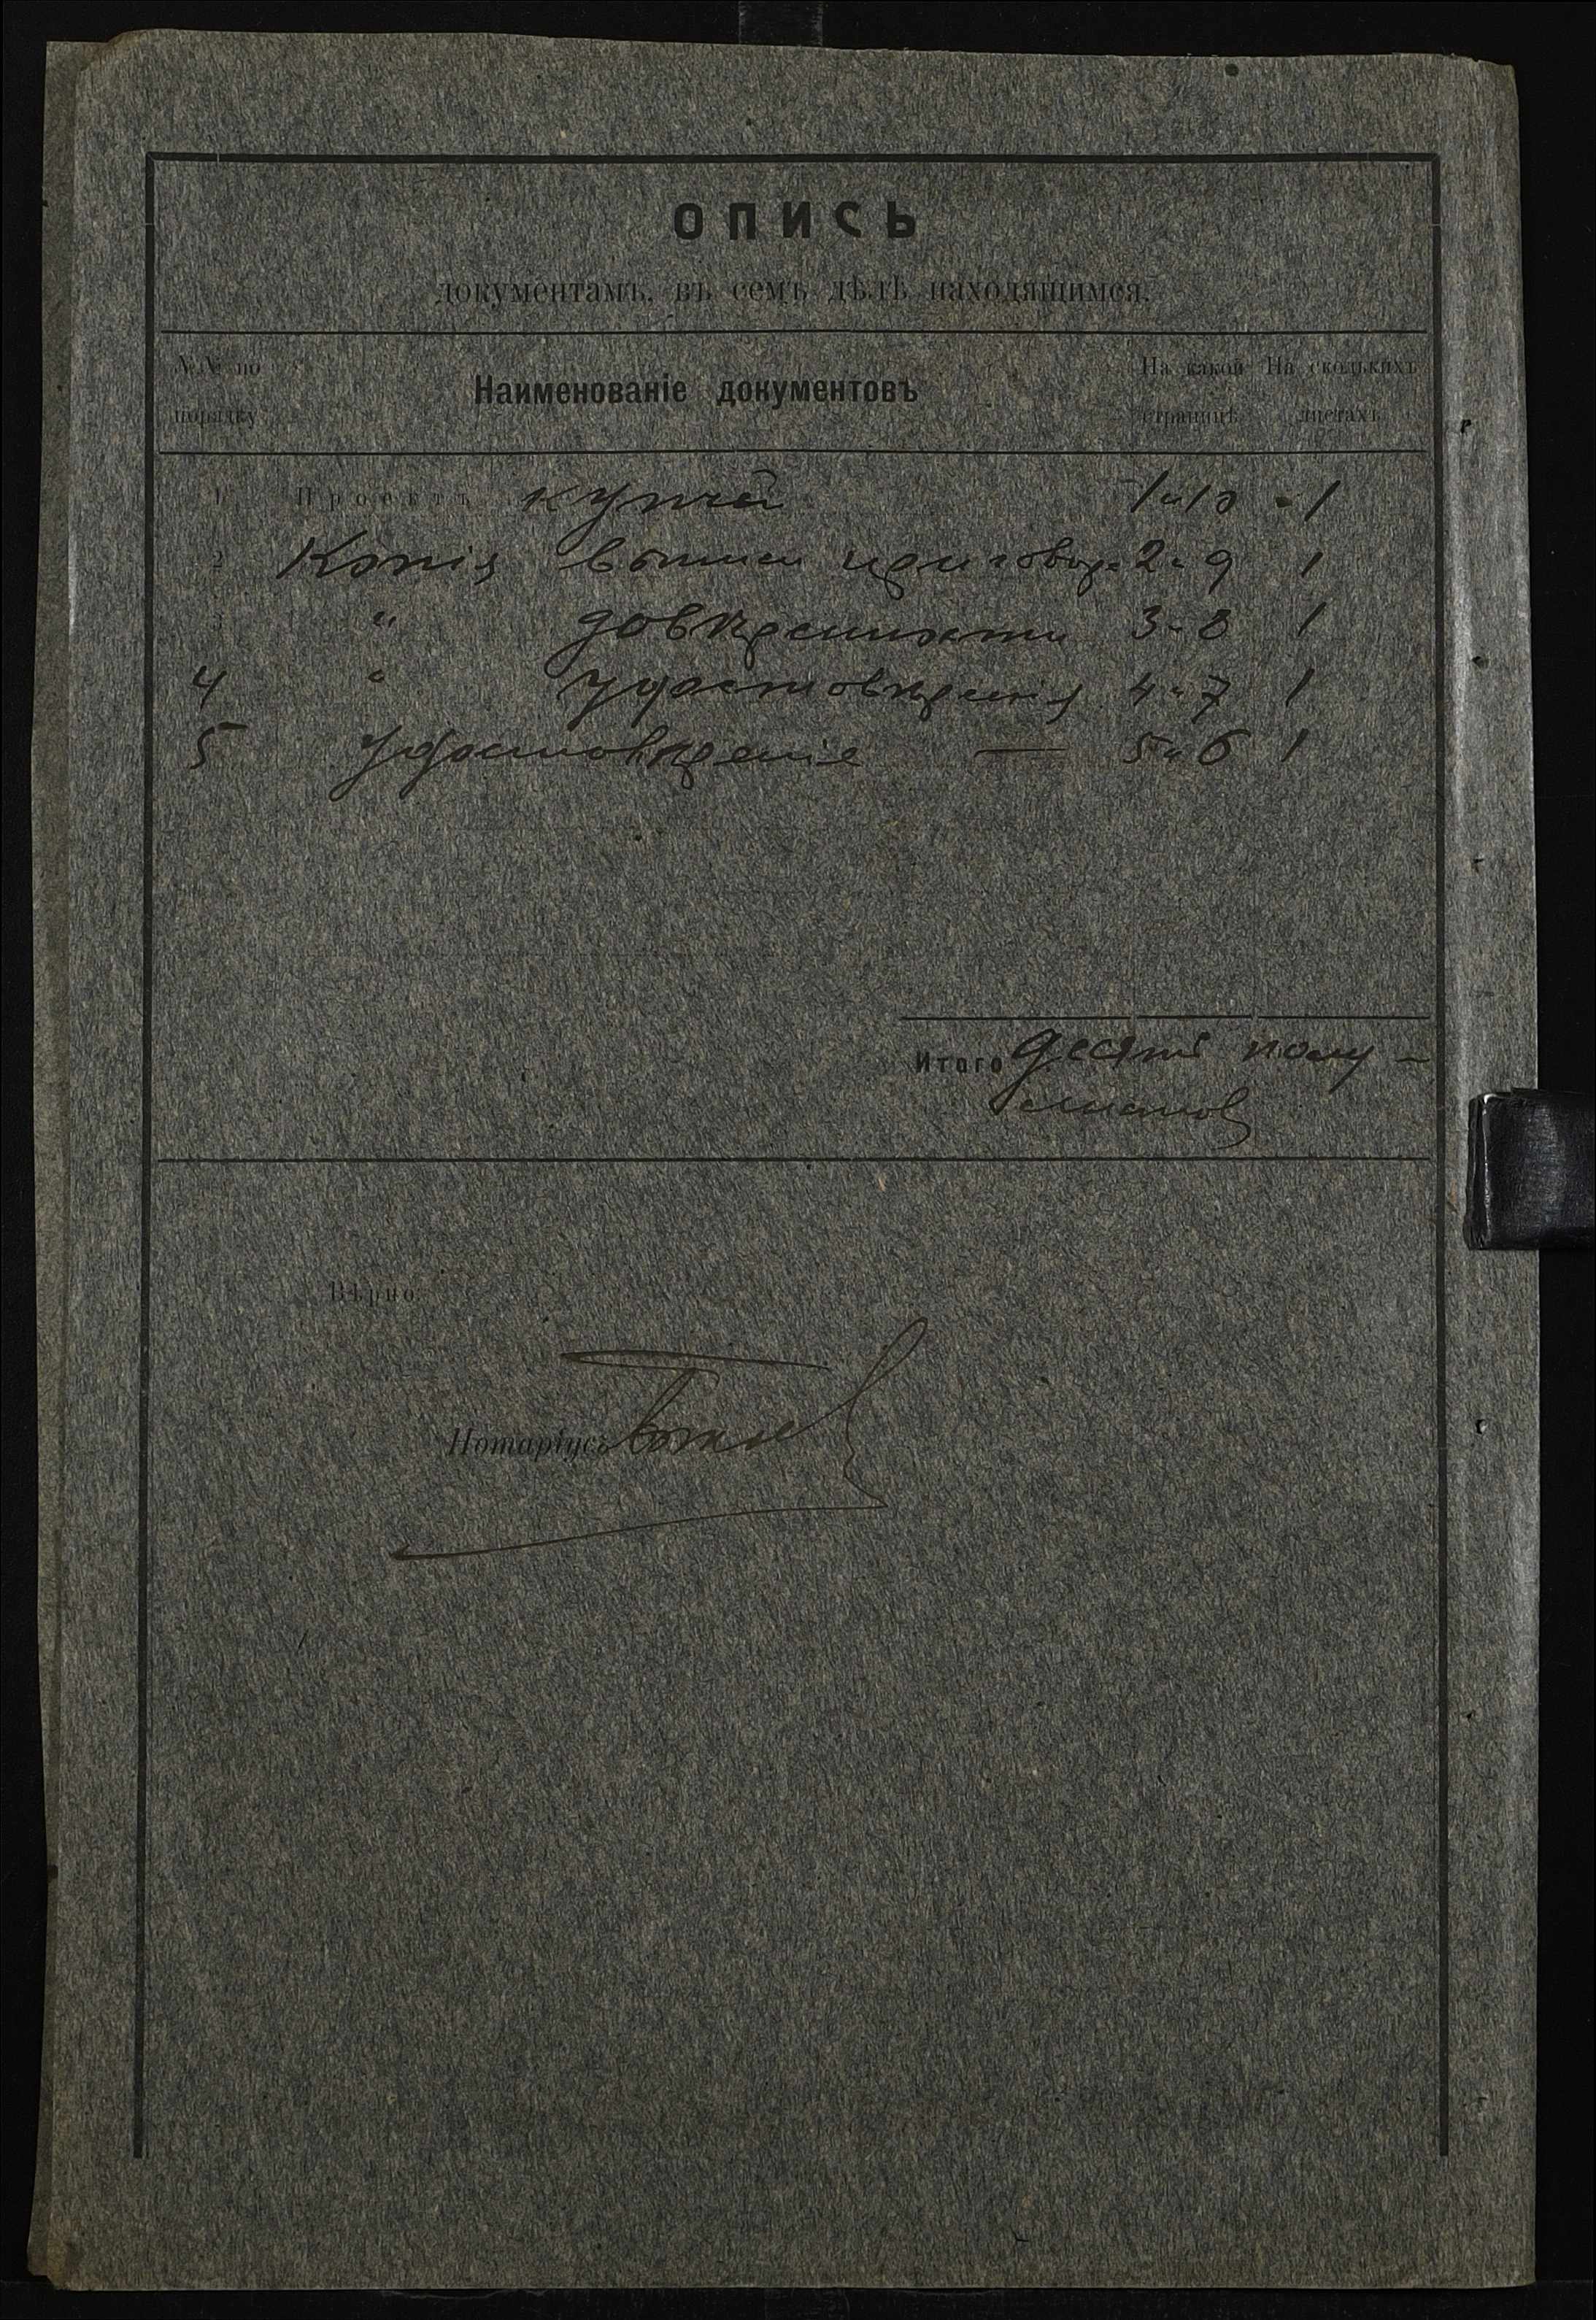 ОПИСЬ
документамъ, въ семъ дѣлѣ находящимся.
№№ по порядку
Наименованіе документовъ
На какой страницѣ
На сколькихъ листахъ
1 Проектъ купчей 1 и 10 - 1
2 Копія выписи приговора 2 и 9 1
3 " довѣренности 3 - 8 1
4 " удостовѣренія 4 и 7 1
5 Удостовѣреніе — 5 и 6 1
Итого десять полу-
листовъ
Вѣрно:
Нотаріусъ